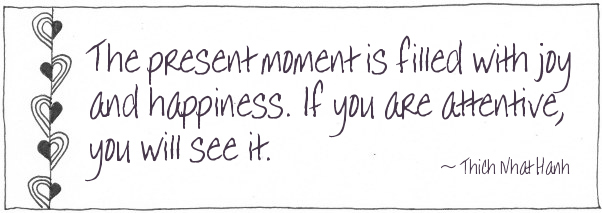 The present moment is filled with joy
and happiness. If you are attentive,
you will see it.
~ Thich Nhat Hanh